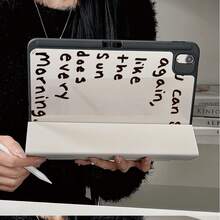 can
again,
like
the
sun
does
every
morning